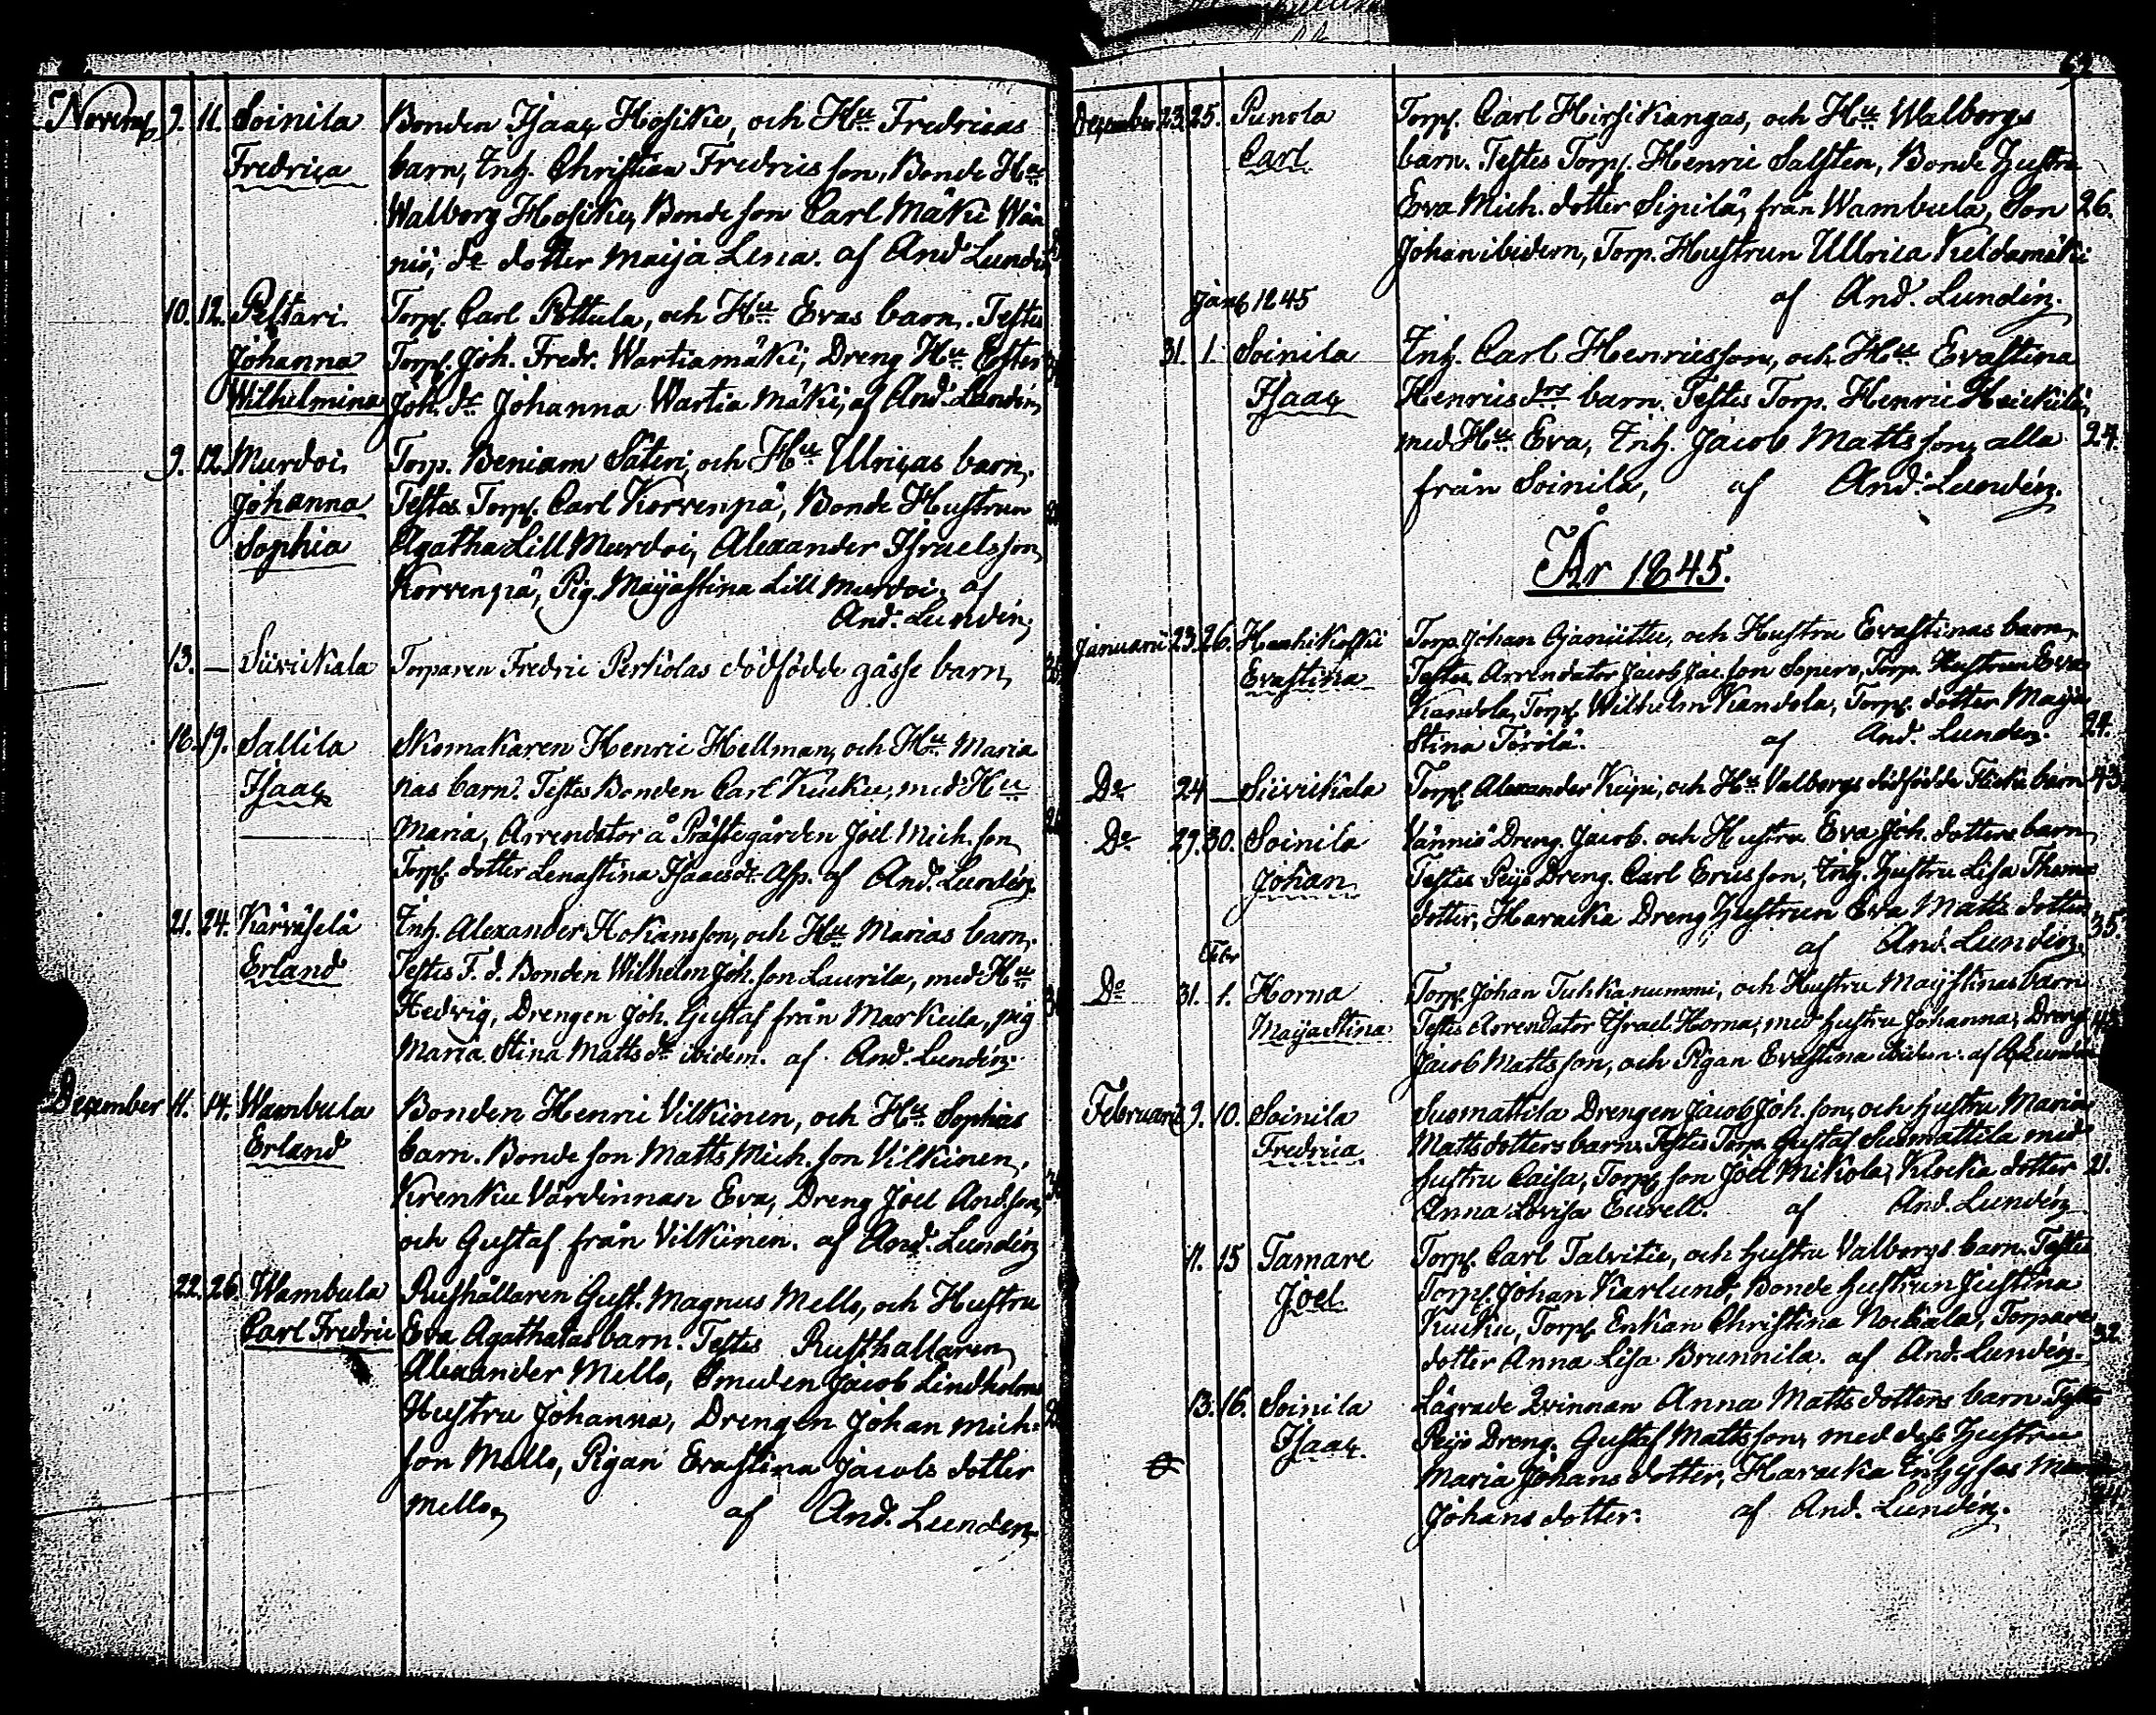 Novemb 9. 11. Soinila Bonden Isaac Hosike, och Hu Fredricas
Fredrica barn, Inh. Christian Fredricsson, Bonde Hu
Walborg Hosike, Bondeson Carl Mäki Wän
niö, de dotter Maija Lena. af And Lundén
10. 12. Peltari Torp. Carl Pottula, och Hu Evas barn. Testes
Johanna Torp. Joh. Fredr. Wartiamäki, Dreng Hu Ester
Wilhelmina Joh. dr Johanna Wartiamäki, af And. Lundén
9. 12. Murdoi Torp. Beniam Säteri, och Hu Ulricas barn.
Johanna Testes Torp. Carl Korvenpä, Bonde Hustrun
Sophia Agatha Lill Murdoi, Alexander Israelsson
Korvenpä, Pig. Maijastina Lill Murdoi; af
And. Lundén
13. — Siivickala Torparen Fredric Perttolas dödfödde gåsse barn,
18. 19. Sallila Skomakaren Henric Hellman, och Hu Maria
Isaac nas barn. Testes Bonden Carl Kucku, med Hu
Maria, Arrendator å Prästegården Joel Mich. son
Torp. dotter Lenastina Isaacsdr Asp. af And. Lundén
21. 24. Karväselä Inh. Alexander Hokansson, och Hu Marias barn.
Erland Testes F. d. Bonden Wilhelm Joh. son Laurila, med Hu
Hedvig, Drengen Joh. Gustaf från Markula, pig
Maria Stina Matts dr ibidem. af And. Lundén
December 11. 14. Wambula Bonden Henric Vilkinen, och Hu Sophias
Erland barn. Bondeson Matts Mich. son Vilkinen,
Krenku Värdinnan Eva, Dreng Joel And.son,
och Gustaf från Vilkinen. af And. Lundén
22. 26. Wambula Rusthållaren Gust. Magnus Mello, och Hustru
Carl Fredric Eva Agathatas barn. Testes Rusthallaren
Alexander Mello, Smeden Jacob Lindholms
Hustru Johanna, Drengen Johan Mich-
son Mello, Pigan Evastina Jacobs dotter
Mello, af And. Lundén
December 23. 25. Punola Torp. Carl Hirsikangas, och Hu Walborgs
Carl barn. Testes Torp. Henric Salsten, Bonde Hustru
Eva Mich. dotter Sipilä, från Wambula, Son 26.
Johan ibidem, Torp. Hustrun Ullrica Keldamäki
Jan 1845 af And. Lundén.
31. 1. Soinila Inh. Carl Henricsson, och Hu Evastina
Isaac Henricsdrs barn. Testes Torp. Henric Heickilä,
med Hu Eva, Inh. Jacob Mattsson, alla 24.
från Soinila, af And. Lundén.
År 1845.
Januarii 23. 26. Hanhikoski Torp. Johan Ojaniittu, och Hustru Evastinas barn,
Evastina Testes Arrendator Jacob Jac. son Sopero, Torp. Hustrun Eva
Kandola, Torp. Wilhelm Kandola, Torp. dotter Maija
Stina Törölä. af And. Lundén. 24.
Do 24 — Siivickala Torp. Alexander Kiipi, och Hu Valborgs dödfödde Flicko barn 43.
Do 29. 30. Soinila Vänniö Dreng. Jacob och Hustru Eva Joh. dotters barn,
Johan Testes Peijo Dreng. Carl Ericsson, Inh. Hustru Lisa Thomas
dotter, Haracka Dreng Hustrun Eva Matts dotter 35.
af And. Lundén,
Febr
Do 31. 1. Horna Torp. Johan Tuhkanummi, och Hustru Maijstinas barn
Maija Stina Testes Arrendator Israel Horna, med hustru Johanna, Dreng
Jacob Mattsson, och Pigan Evastina ibidem. af A. Lundén
Februarii 9. 10. Soinila Suomattila Drengen Jacob Joh. son, och hustru Maria
Fredrica Mattsdotters barn. Testes Torp. Gustaf Suomattila med
hustru Caisa, Torp. son Joel Mikola, Klocka dotter 21.
Anna Lovisa Eurell. af And. Lundén
11. 15 Tamare Torp. Carl Talvitie, och hustru Valborgs barn. Testes
Joel Torp. Johan Karlund, Bonde hustrun Justina
Kucku, Torp. Enkan Christina Nockala, Torpare 32.
dotter Anna Lisa Brunnila. af And. Lundén.
13. 16. Soinila Lägrade Qvinnan Anna Mattsdotters barn Testes
Isaac Peijo Dreng. Gustaf Mattsson, med dess Hustru
Maria Johans dotter, Haracka Inhyses
Johans dotter. af And. Lundén.